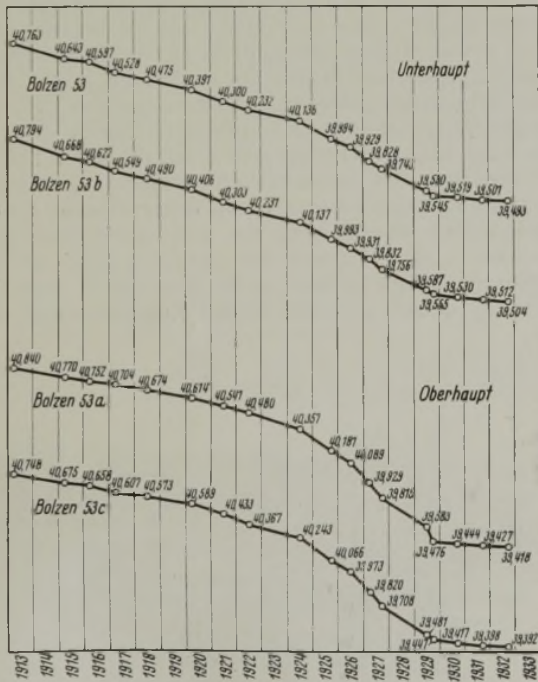 40,763 40,643 40,597 40,528 40,475 40,391 40,300 40,232 40,136 39,994 39,929 39,828 39,743 39,545 39,519 39,501 39,493
Bolzen 53
Unterhaupt
40,794 40,668 40,622 40,549 40,490 40,406 40,303 40,231 40,137 39,993 39,931 39,832 39,756 39,587 39,565 39,530 39,512 39,504
Bolzen 53b
40,840 40,770 40,752 40,704 40,674 40,614 40,541 40,480 40,357 40,181 40,089 39,929 39,815 39,583 39,476 39,444 39,427 39,418
Bolzen 53a
Oberhaupt
40,748 40,675 40,658 40,607 40,573 40,433 40,367 40,243 40,066 39,973 39,820 39,708 39,481 39,447 39,417 39,398 39,392
Bolzen 53c
1913 1914 1915 1916 1917 1918 1919 1920 1921 1922 1923 1924 1925 1926 1927 1928 1929 1930 1931 1932 1933